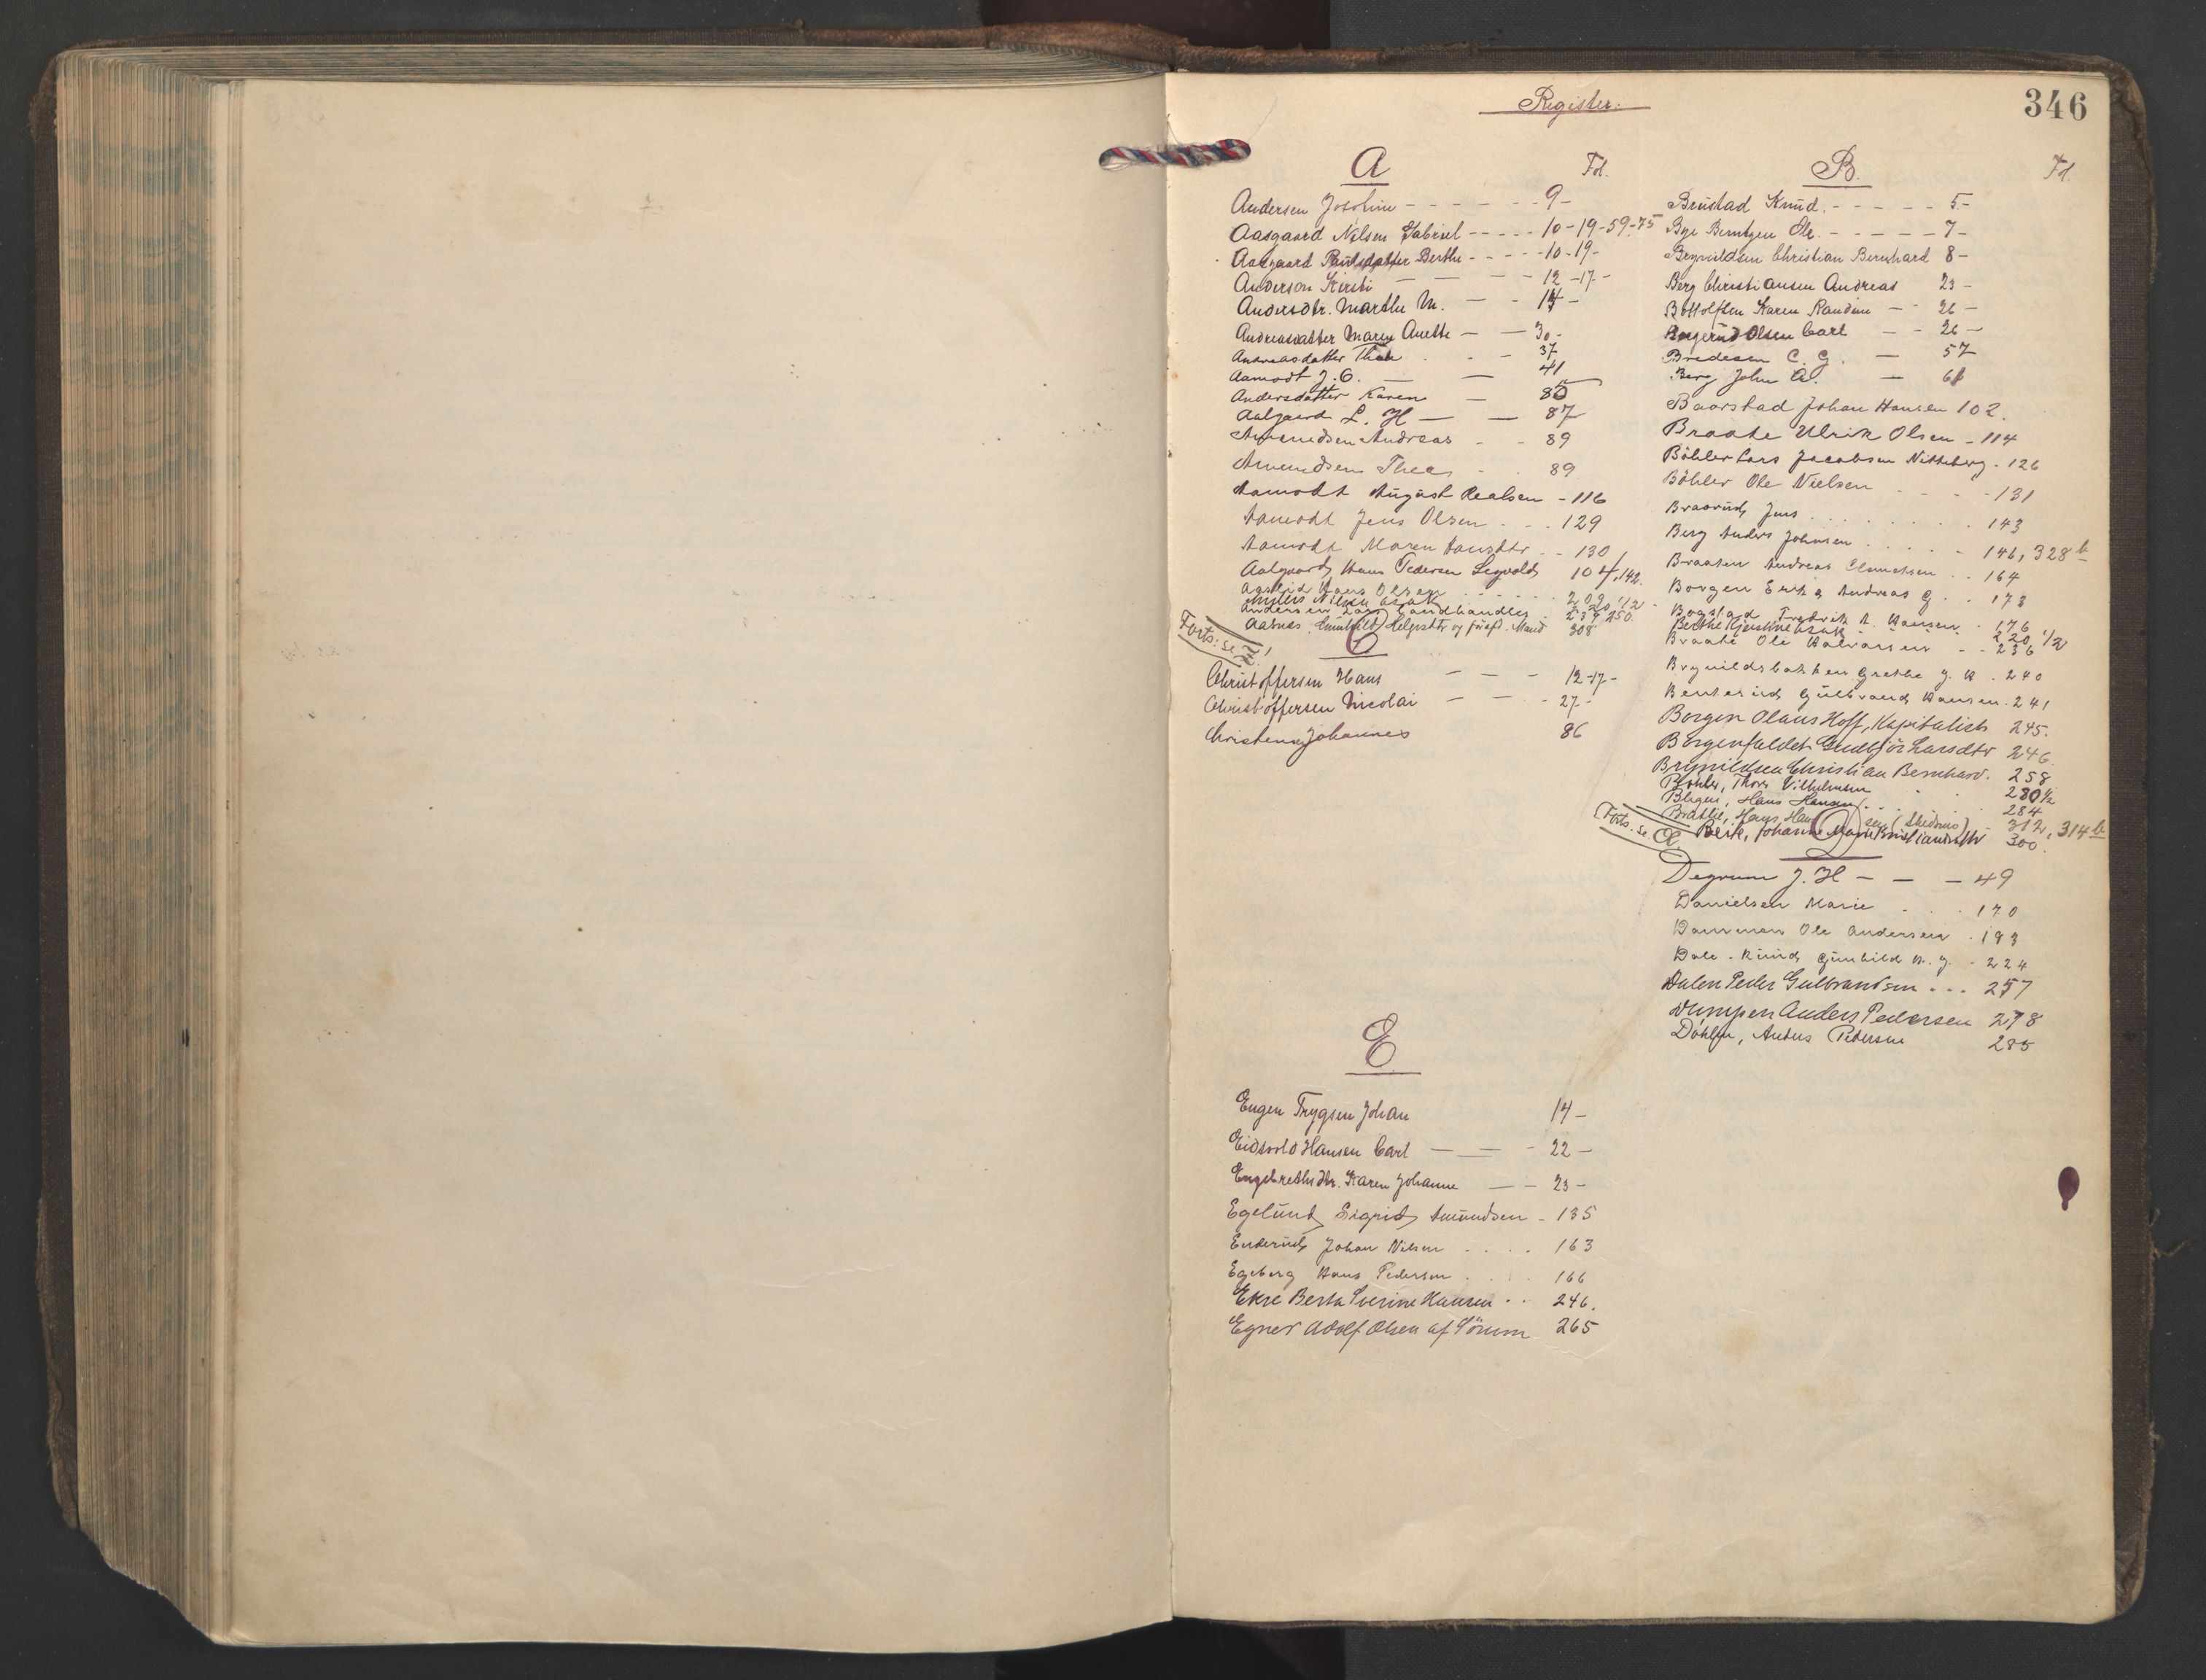 Register.
346
A
Fol.
Andersen Josefine - - - - - - 9 -
Aasgaard Nilsen Gabriel - - - - - 10-19-59-75
Aasgaard Paulsdatter Berthe - - - - - 10-19-
Anderson Kirsti - - - 12-17-
Andersdtr. Marthe M. - - 14 -
Andreasdatter Maren Anette - - 30 -
Andreasdatter Thea - - 37
Aamodt J. O. - - 41
Andersdatter Karen - 85
Aalgaard L. H - - 87
Amundsen Andreas - - 89
Amundsen Thea - - 89
Aamodt August - 116
Aamodt Jens Olsen - . . 129
Aamodt Maren Hansdtr - - 130
Aalgaard, Hans Pedersen Segvold, 104, 142.
Hans Olsen 209
Nilsen 220 1/2
Andersen Landhandler 239, 250.
Aasnes, Gunhild Helgesdtr og Mand 308
Forts. se Å!
C
Christoffersen Hans - - - 12-17-
Christoffersen Nicolai - - - 27 -
Christensen Johannes 86
E
Engen Trygsen Johan 14 -
Eidsvold Hansen Carl - - - 22 -
Engebrethsdtr. Karen Johanne - - 23 -
Egelund, Sigrid, Amundsen - 135
Enderud, Johan Nilsen . . . . 163
Egeberg Hans Pedersen . . . 166
Ekse Berth Severine Hansen . . 246.
Egner Adolf Olsen af Sörum 265
B.
Fol.
Brustad Knud. - - - - - 5 -
Bye Berntzen Ole. - - - - - 7 -
Brynildsen Christian Bernhard 8 -
Berg Christiansen Andreas 23 -
Bottolfsen Karen Randine - - 26 -
Olsen Carl - - 26 -
Bredesen C. G. - 57
Berg John A. - 61
Baarstad Johan Hansen 102.
Braate Ulrik Olsen - 114
Böhler Lars Jacobsen Nitteberg - 126
Böhler Ole Nielsen - - - 131
Braarud, Jens . . . . . 143
Berg Anders Johnsen . . . . . 146, 328 b
Braaten Andreas Clemetsen . . 164
Borgen Erik Andreas G . . 173
Bogstad Fredrik A. Hansen - 176
Berthe 220 1/2
Braate Ole Halvorsen - - 236
Brynildsbakken Grethe J. K . 240
Benterud Gulbrand Hansen. 241
Borgen Olaus Hoff, Kapitalist 245.
Borgenfaldet Gudbjör Larsdtr 246
Brynildsen Christian Bernhard. 258
Böhler, Thor Vilhelmsen 280 1/2
Hans Hansen . . . 284
Bratlie, Hans Hansen (Skedsmo) - 312, 314 b
Berk, Johanne Marie Kristiansdtr 300.
Forts. se Æ.
D
Degrum J. H - - - 49
Danielsen Marie . . . 170
Dammen Ole Andersen . 193
Dale - Ruud, Gunhild K. J. - 224
Dalen Peder Gulbrandsen . . . 257
Dumpen Anders Pedersen 278
Döhlen, Anders Pedersen 285